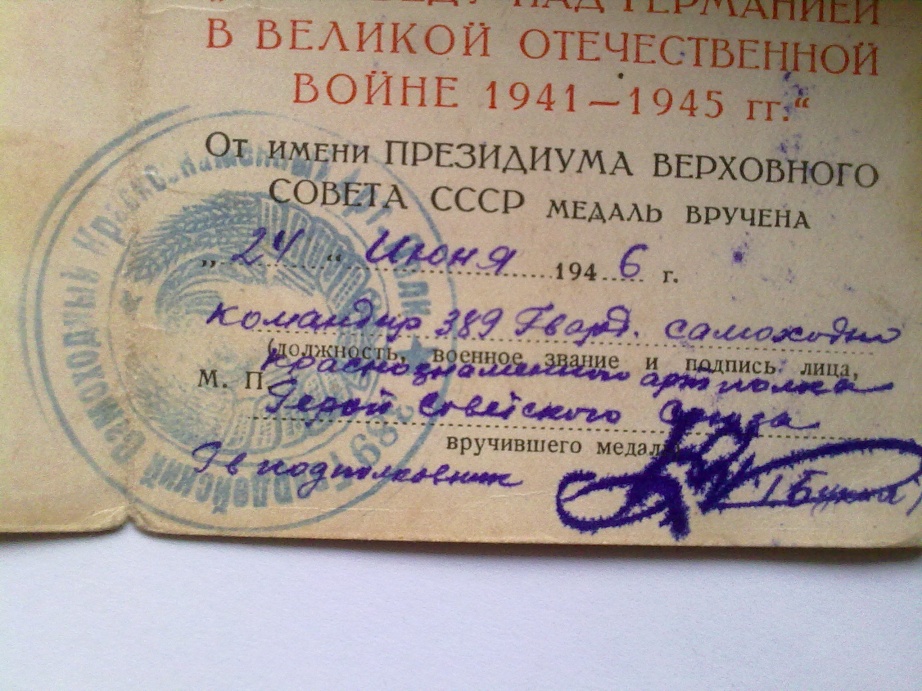 НАД ГЕРМАНИЕЙ
В ВЕЛИКОЙ ОТЕЧЕСТВЕННОЙ
ВОЙНЕ 1941—1945 гг.“
От имени ПРЕЗИДИУМА ВЕРХОВНОГО
СОВЕТА СССР МЕДАЛЬ ВРУЧЕНА
„24“ Июня 1946 г.
командир 389 Гвард. самоходно
(должность, военное звание и подпись лица,
Краснознаменного артполка
М. П.
Герой Советского Союза
вручившего медаль
Гв подполковник
389 Гвардейский Самоходный Краснознаменный Арт. Полк